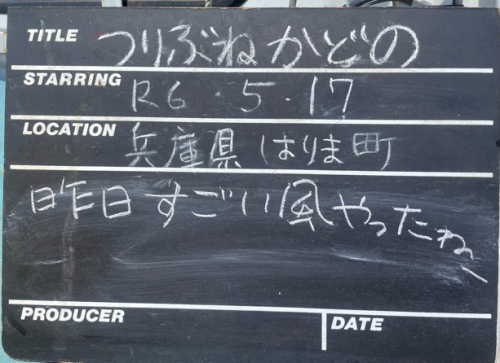 TITLE つりぶねかどの
STARRING R6・5・17
LOCATION 兵庫県 はりま町
昨日 すごい風やったね、
PRODUCER DATE